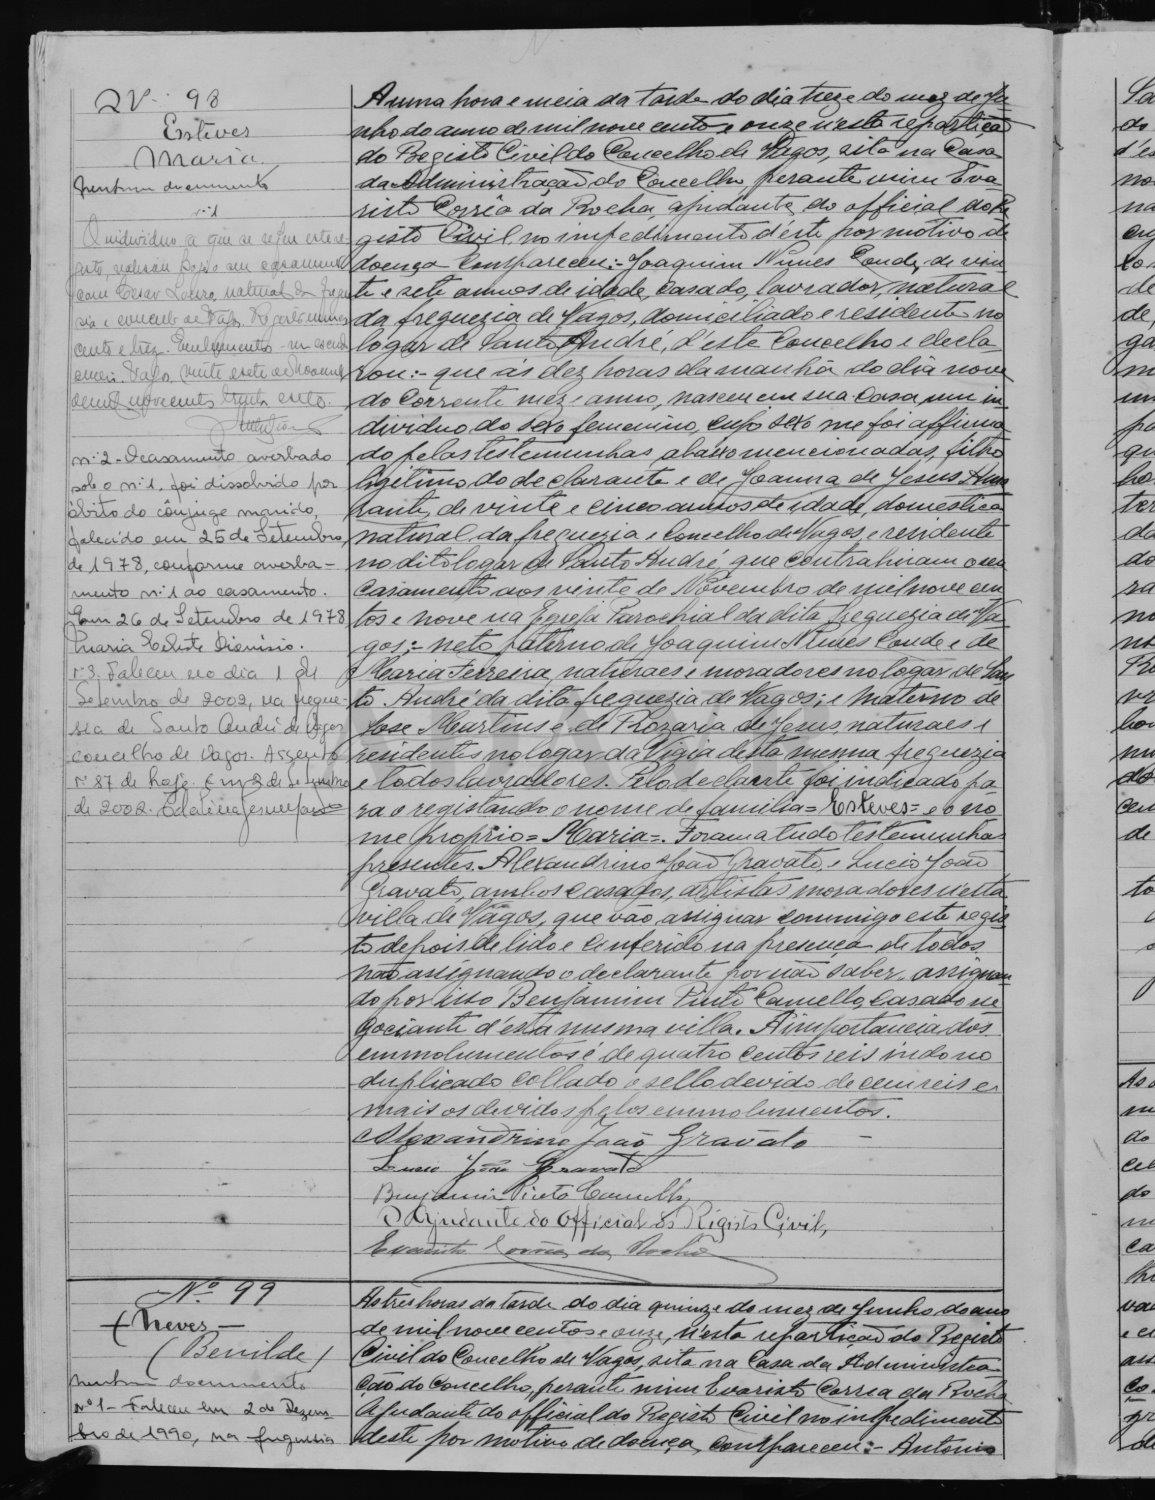 Nº 98
Esteves
Maria
Nenhum documento
nº1
O individuo a que se refere este re-
gisto,
com Cesar natural da fregue-
sia e concelho de Vagos. Registo numero
cento e tres. Emolumento
Vagos, vinte e sete de Novembro
de mil novecentos trinta e oito.
nº 2 - O casamento averbado
sob o nº 1, foi dissolvido por
óbito do cônjuge marido,
falecido em 25 de Setembro
de 1978, conforme averba-
mento nº 1 ao casamento.
Em 26 de Setembro de 1978
Maria Celeste Dionísio.
nº 3. Faleceu no dia 1 de
Setembro de 2002, na fregue-
sia de Santo André de Vagos
concelho de Vagos. Assento
nº 87 de hoje. Em 2 de Setembro
de 2002.
A uma hora e meia da tarde do dia treze do mez de Ju-
nho do anno de mil nove centos e onze n'esta repartição
do Registo Civil do Concelho de Vagos, sita na Casa
da Administração do Concelho perante mim Eva-
risto Corrêa da Rocha, ajudante do official do Re-
gisto Civil, no impedimento d'este por motivo de
doença compareceu:- Joaquim Nunes Conde, de vin-
te e sete annos de idade, casado, lavrador, natural
da freguezia de Vagos, domiciliado e residente no
logar de Santo André, d'este Concelho e decla-
rou:- que ás dez horas da manhã do dia nove
do corrente mez e anno, nasceu em sua casa um in-
dividuo do sexo femenino, cujo sexo me foi affirma-
do pelas testemunhas abaixo mencionadas, filho
legitimo do declarante e de Joanna de Jesus
de vinte e cinco annos de idade, domestica
natural da freguezia e Concelho de Vagos, e residente
no dito logar de Santo André, que contrahiram o seu
casamento aos vinte de Novembro de mil nove cen-
tos e nove na Egreja Parochial da dita freguezia de Va-
gos;- neto paterno de Joaquim Nunes Conde e de
Maria Ferreira, naturaes e moradores no logar de San-
to André da dita freguezia de Vagos; e materno de
José Martins e de Rozaria de Jesus, naturaes e
residentes no logar da Vigia desta mesma freguezia
e todos lavradores. Pelo declarante foi indicado pa-
ra o registando o nome de familia = Esteves = e o no-
me proprio = Maria =. Foram a tudo testemunhas
presentes. Alexandrino João Gravato, e Lucio João
Gravato, ambos casados, artistas moradores n'esta
villa de Vagos, que vão assignar commigo este regis-
to depois de lido e conferido na presença de todos
não assignando o declarante por não saber, assignan-
do por isso Benjamim Pinto Camello, casado ne-
gociante d'esta mesma villa. A importancia dos
emmolumentos é de quatro centos reis indo no
duplicado collado o sello devido de cem reis e
mais os devidos pelos emmolumentos.
Alexandrino João Gravato
Lucio João Gravato
Benjamim Pinto Camello
O Ajudante do Official do Registo Civil,
Evaristo Corrêa da Rocha
Nº 99
Neves
(Benilde)
Nenhum documento
nº 1 - Faleceu em 2 de Dezem-
bro de 1990, na freguesia
As tres horas da tarde do dia quinze do mez de Junho do anno
de mil nove centos e onze, n'esta repartição do Registo
Civil do Concelho de Vagos, sita na Casa da Administra-
ção do Concelho, perante mim Evaristo Correa da Rocha
Ajudante do official do Registo Civil no impedimento
deste por motivo de doença, compareceu:- Antonio